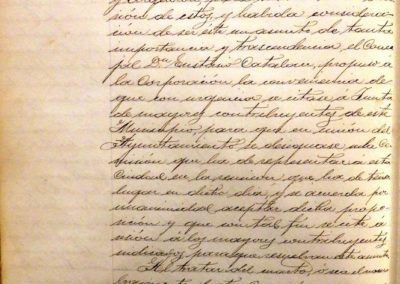 sión de estos y habida consideración
cion de ser este un asunto de tanta
importancia y trascendencia, el Conce
jal Dn Gustavo Catalan, propuso a
la Corporación la conveniencia de
que con urgencia se citase á Junta
de mayores contribuyentes de este
Municipio, para que en unión del
Ayuntamiento se designase una Co
misión que ha de representar á esta
Ciudad en la reunión que ha de tener
lugar en dicho día, y se acuerda por
unanimidad aceptar dicha propo
sición y que con tal fin se cite á
sesión á los mayores contribuyentes
indicados para que resuelvan este asunto
Al tratar del